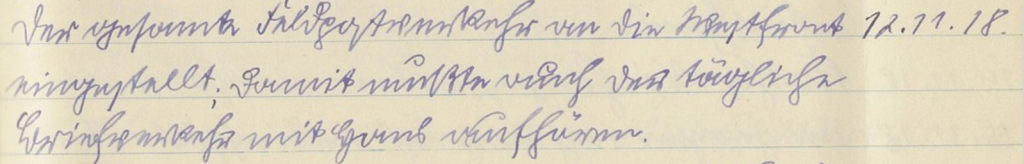 Der gesamte Feldpostverkehr an die Westfront 12.11.18.
eingestellt; damit mußte auch der tägliche
Briefverkehr mit Hans aufhören.